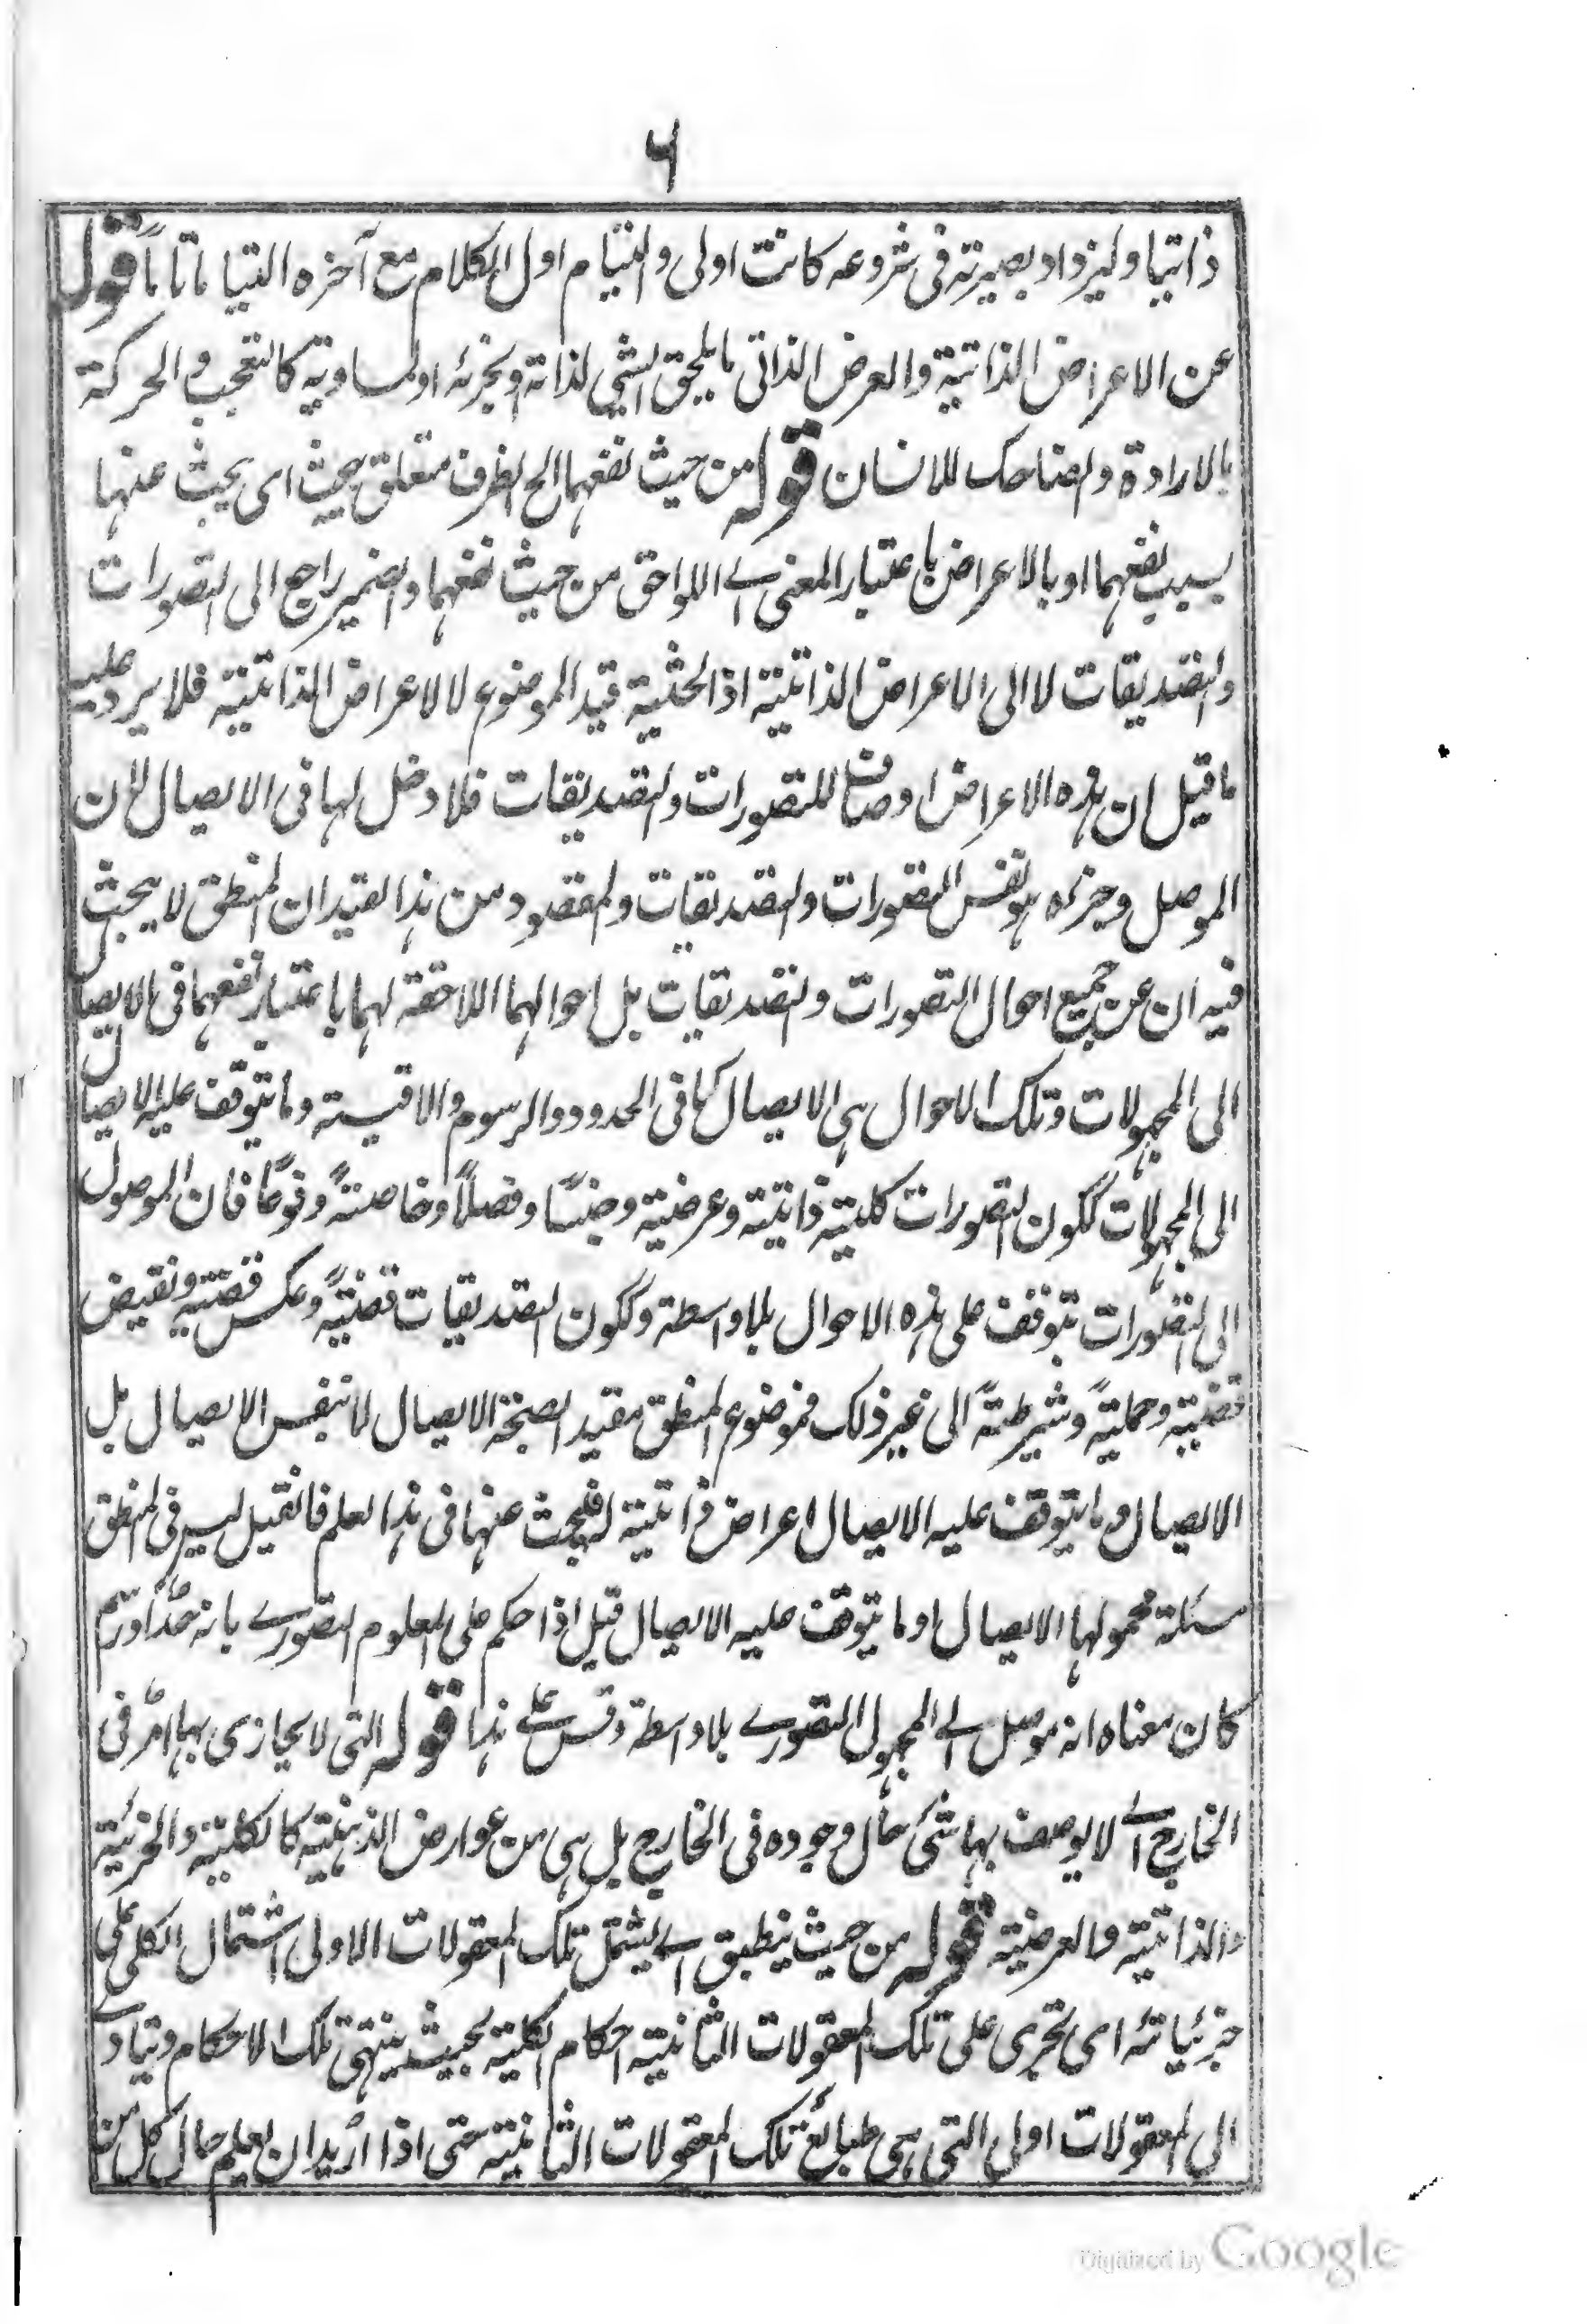 ٦
ذاتيا وليزداد بصيرته فى شروعه كانت اولى والتيام اول الكلام مع آخره التياما تاما قوله
عن الاعراض الذاتية والعرض الذاتى ما يلحق الشئ لذاته او لجزئه او لمساويه كالتعجب والحركة
بالارادة والضاحك للانسان قوله من حيث نفعهما الخ الظرف متعلق يبحث اى يبحث عنها
بسبب نفعهما او بالاعراض باعتبار المعنى اے اللواحق من حيث نفعهما والضمير راجع الى التصورات
والتصديقات لا الى الاعراض الذاتية اذ الحيثية قيد الموضوع لا لاعراض الذاتية فلا يرد عليه
ما قيل ان هذه الاعراض اوصاف للتصورات والتصديقات فلا دخل لها فى الايصال لان
الموصل وجزئه هو نفس التصورات والتصديقات والمقصود من هذا القيد ان المنطق لا يبحث
فيه ان عن جميع احوال التصورات والتصديقات بل احوالهما اللاحقة لهما باعتبار نفعهما فى الايصال
الى المجهولات وتلك الاحوال هى الايصال كما فى الحدود والرسوم والاقيسة وما يتوقف عليه الايصال
الى المجهولات ككون التصورات كلية ذاتية وعرضية وجنسًا وفصلًا وخاصةً ونوعًا فان الموصول
الى التصورات يتوقف على هذه الاحوال بلا واسطة وككون التصديقات قضيةً وعكس قضية ونقيض
قضية وحمليةً وشرطيةً الى غير ذلك فموضوع المنطق مقيد بصحة الايصال لا بنفس الايصال بل
الايصال وما يتوقف عليه الايصال اعراض ذاتية له فيبحث عنها فى هذا العلم فان قيل ليس فى المنطق
مسئلة محمولها الايصال او ما يتوقف عليه الايصال قيل اذا حكم على المعلوم التصورے بانه حدٌ او رسم
كان معناه انه موصل اے المجهول التصورے بلا واسطة وقس علے هذا قوله التى لا يحازى بها امرٌ فى
الخارج اے لا يوصف بها شئ حال وجوده فى الخارج بل هى من عوارض الذهنية كالكلية والجزئية
والذاتية والعرضية قوله من حيث ينطبق اے يشتمل تلك المعقولات الاولى اشتمال الكلى على
جزئياته اى تجرى على تلك المعقولات الثانية احكام الكلية بحيث ينتهى تلك الاحكام ويتادے
الى المعقولات اولى التى هى طبائع تلك المعقولات الثانية حتى اذا اريد ان يعلم حال كل من
Digitized by Google